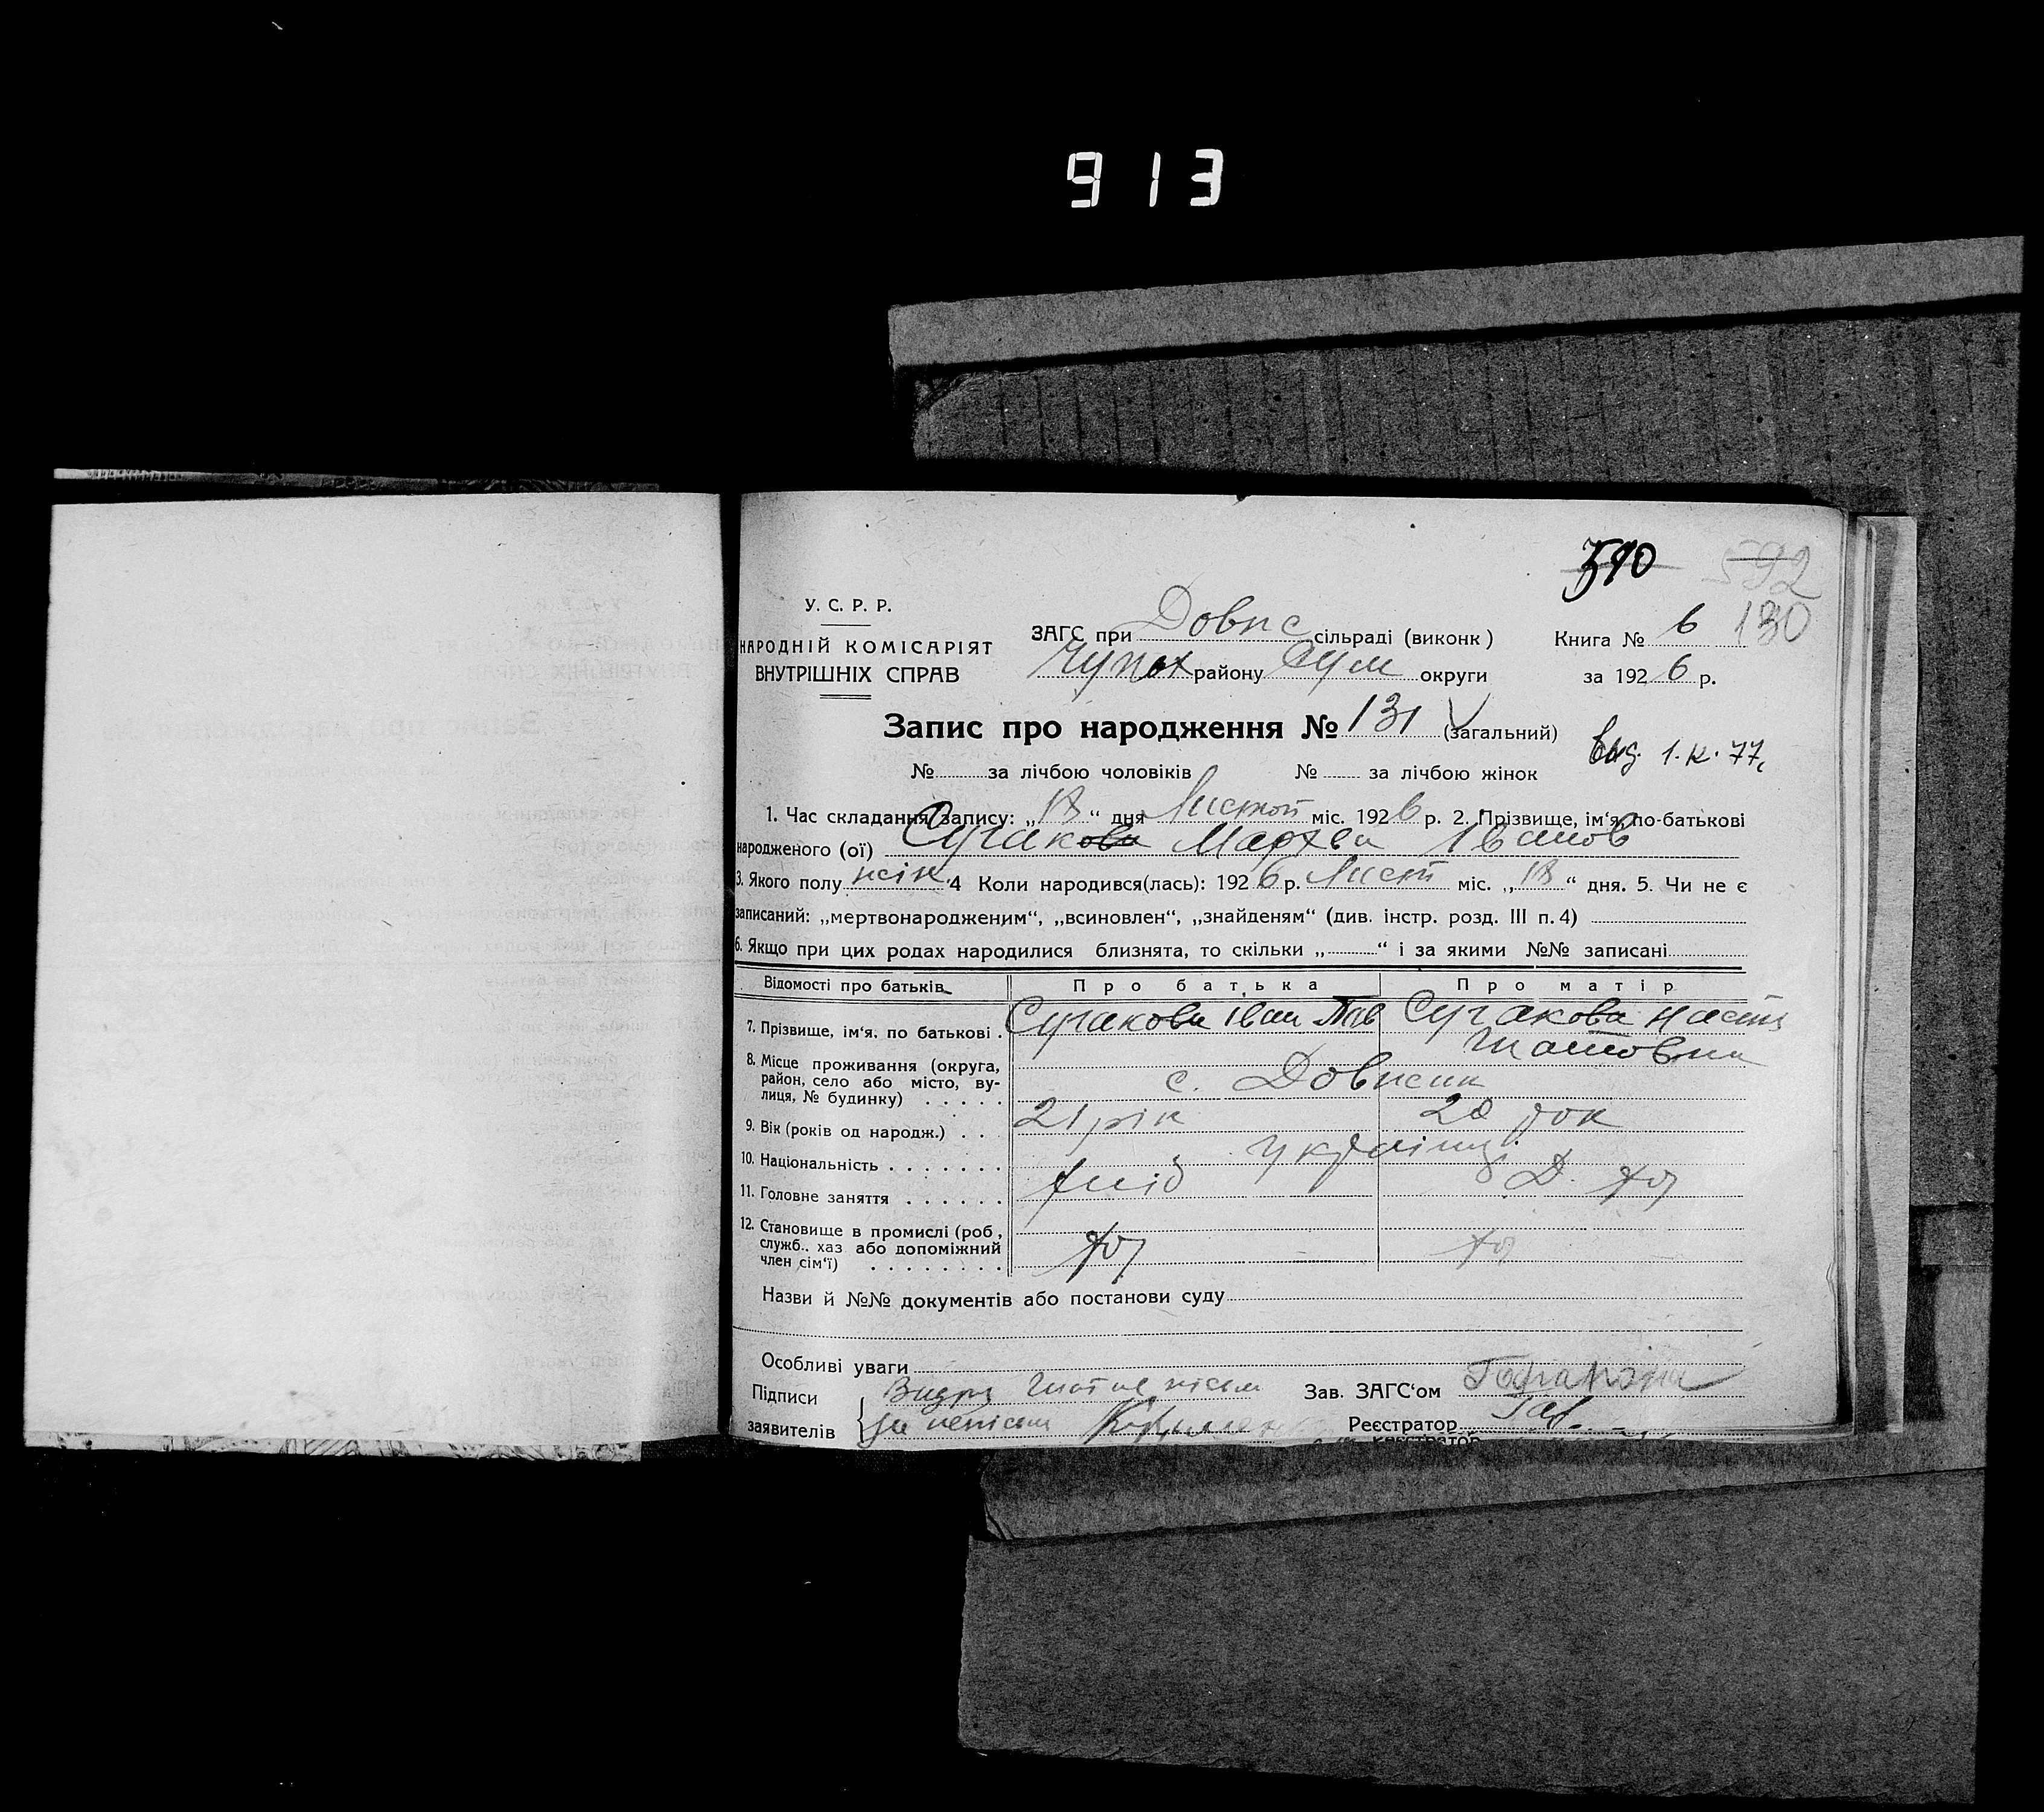 913
590 592
У. С. Р. Р.
НАРОДНІЙ КОМІСАРІЯТ
ВНУТРІШНІХ СПРАВ
ЗАГС при Довпс сільраді (виконк)
Чупах району Сум округи
Книга № 6 130
за 1926 р.
Запис про народження № 131 (загальний)
вид. 1.К.77
№ за лічбою чоловіків № за лічбою жінок
1. Час складання запису: „18“ дня Листоп міс. 1926 р. 2. Прізвище, ім'я, по-батькові
народженого (ої) Сугакова Марфа Іванов
3. Якого полу жін. 4 Коли народився(лась): 1926 р. Лист міс. „18“ дня. 5. Чи не є
записаний: „мертвонародженим“, „всиновлен“, „знайденям“ (див. інстр. розд. III п. 4)
6. Якщо при цих родах народилися близнята, то скільки „ “ і за якими №№ записані
Відомості про батьків Про батька Про матір
7. Прізвище, ім'я. по батькові . Сугакова Іван Пав Сугакова Настя
8. Місце проживання (округа,
район, село або місто, ву-
лиця, № будинку) . . . . . с.
9. Вік (років од народж.) . . . 21 рік 20 рок
10. Національність . . . . . . . Українці
11. Головне заняття . . . . . . хлід Д. хоз
12. Становище в промислі (роб,
служб.. хаз або допоміжний
член сім'ї) . . . . . . . . хоз хоз
Назви й №№ документів або постанови суду
Особливі уваги
Підписи
заявителів
Зав. ЗАГС'ом
Реєстратор
реєстратор